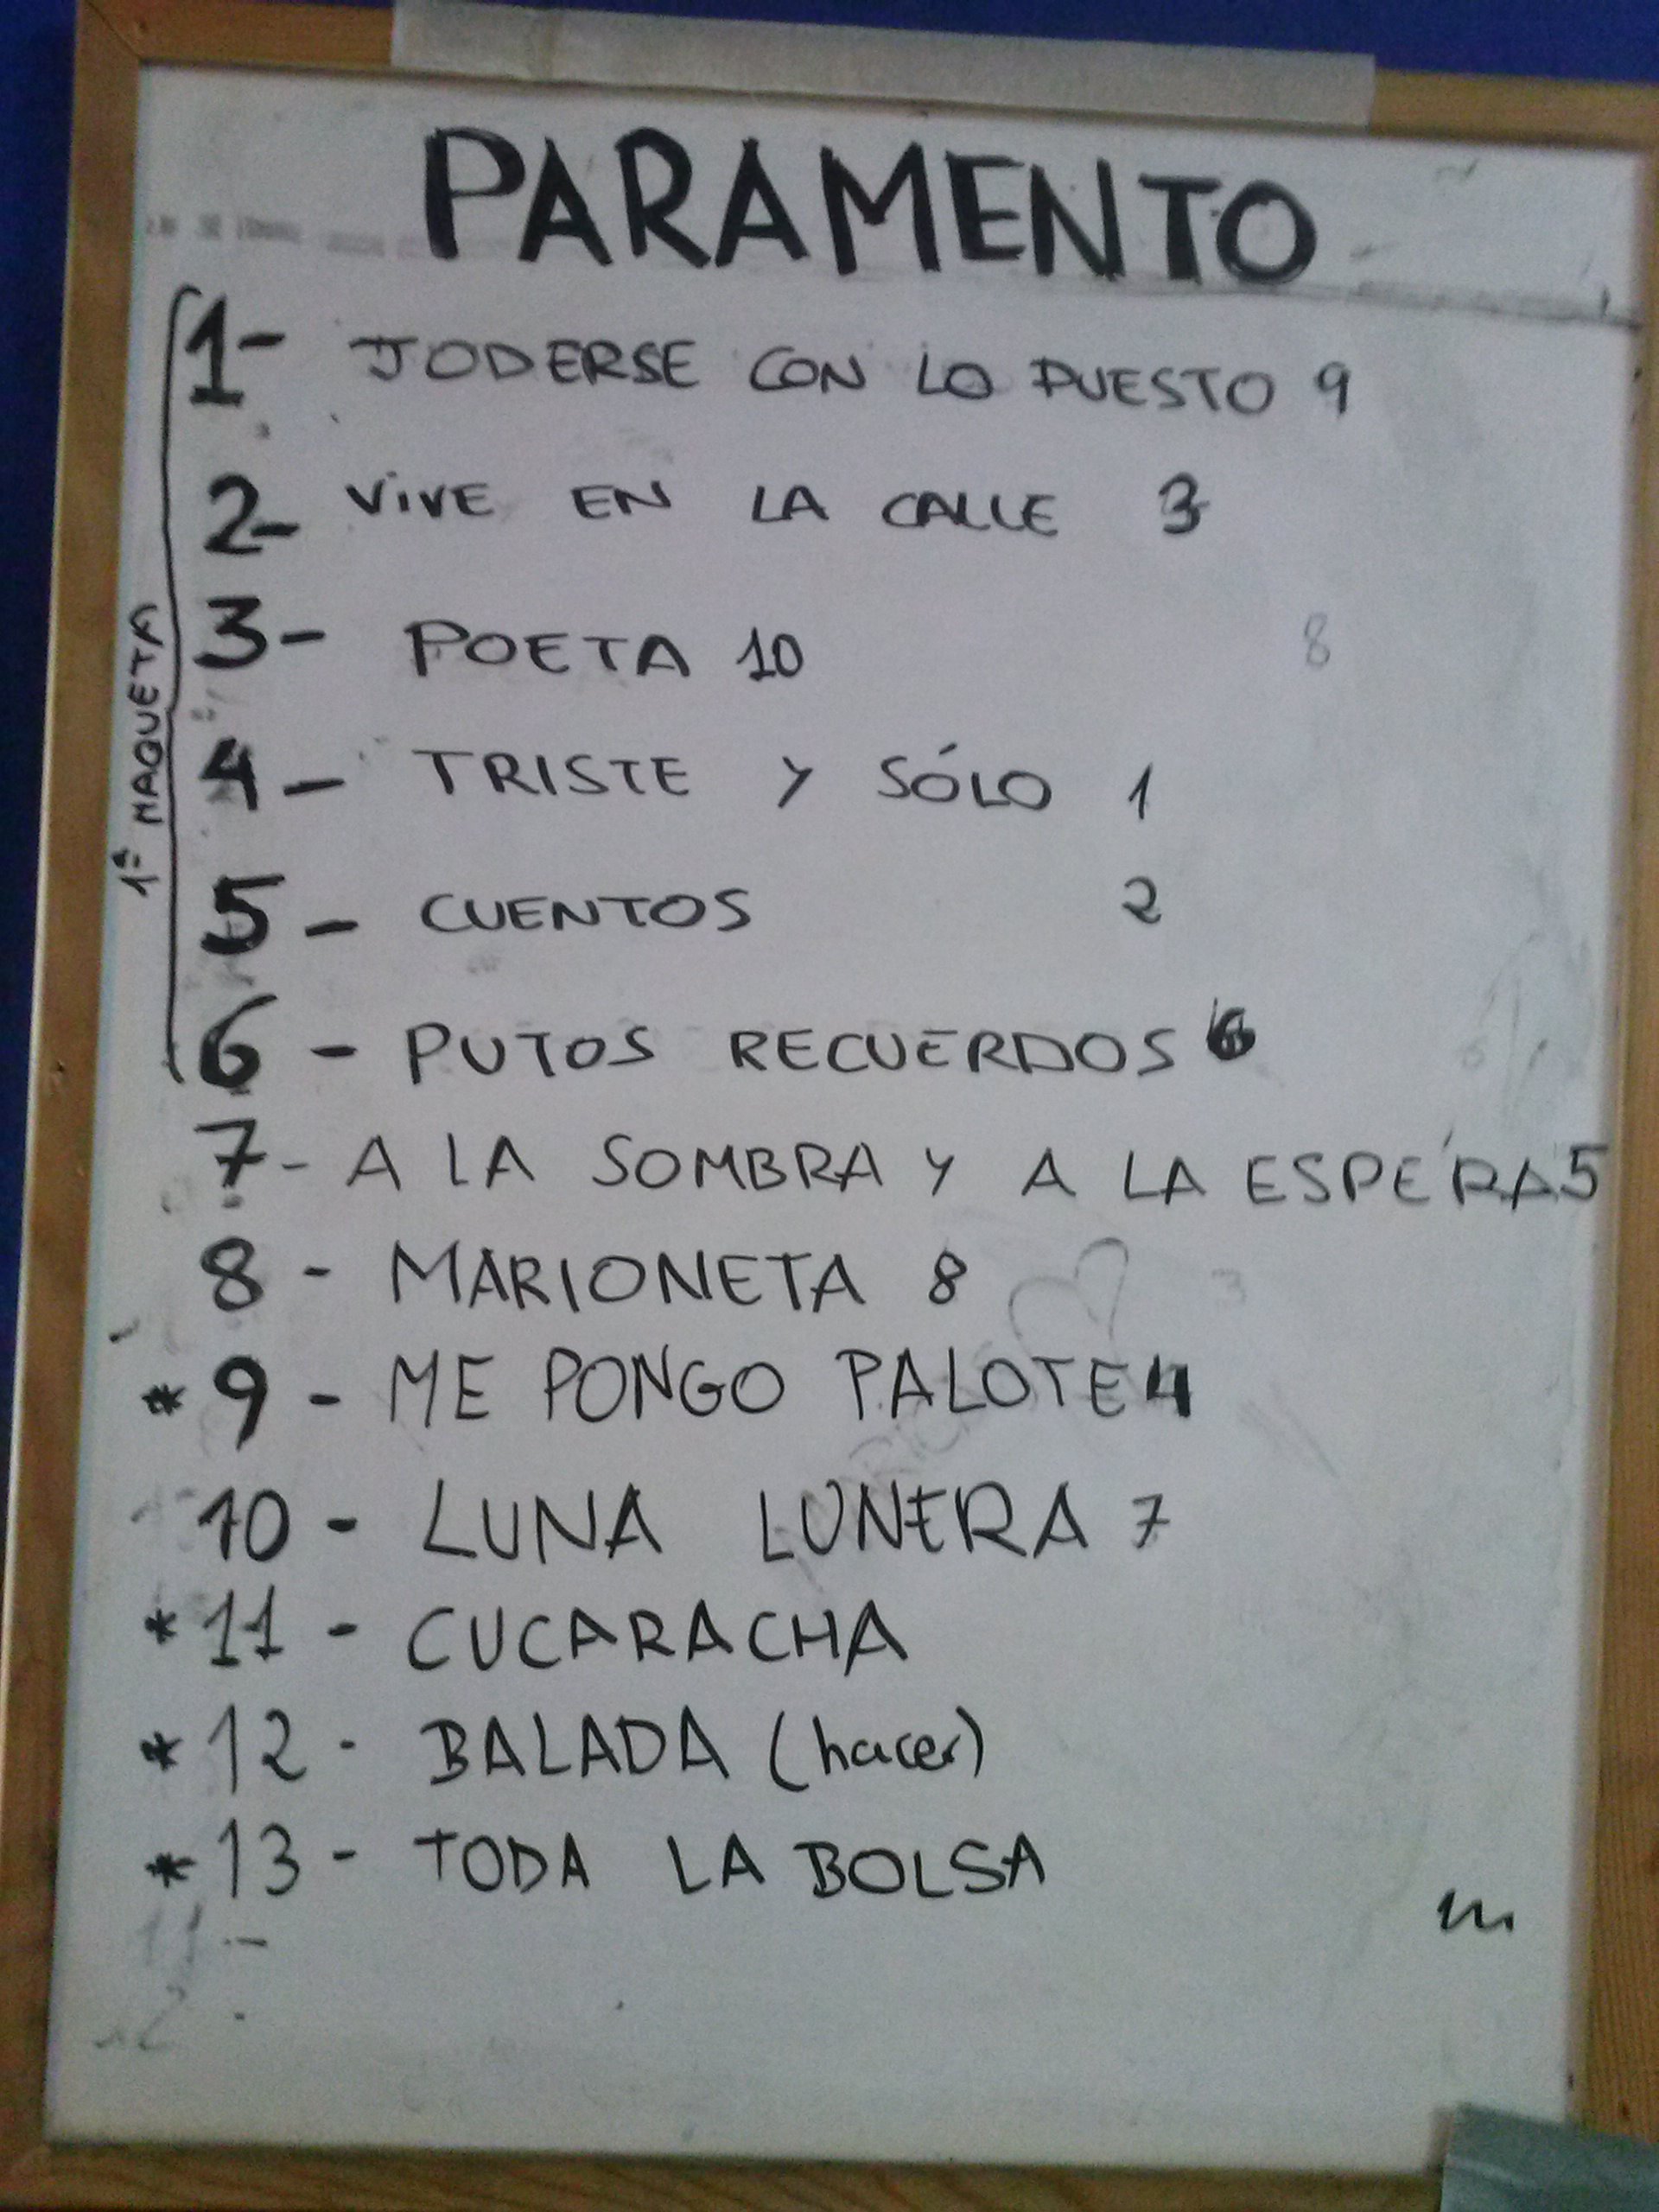 PARAMENTO
1- JODERSE CON LO PUESTO 9
2- ViVE EN LA CALLE 3
3- POETA 10 8
4- TRISTE Y SÓLO 1
5- CUENTOS 2
6- PUTOS RECUERDOS 6
1ª MAQUETA
7- A LA SOMBRA Y A LA ESPERA 5
8- MARIONETA 8
3
* 9- ME PONGO PALOTE 4
10- LUNA LUNERA 7
* 11- CUCARACHA
* 12- BALADA (hacer)
* 13- TODA LA BOLSA